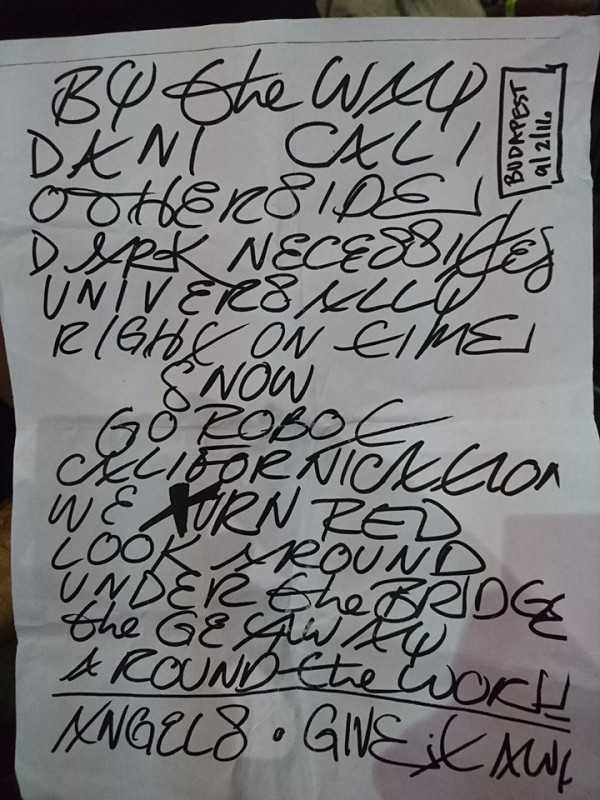 BY the WAY
BUDAPEST
9/2/16
DANI CALI
OTHERSIDE
DARK NECESSITIES
UNIVERSALLY
RIGHT ON TIME
SNOW
GO ROBOT
CALIFORNICATION
WE TURN RED
LOOK AROUND
UNDER the BRIDGE
the GETAWAY
AROUND the WORLD
ANGELS • GIVE it AWA